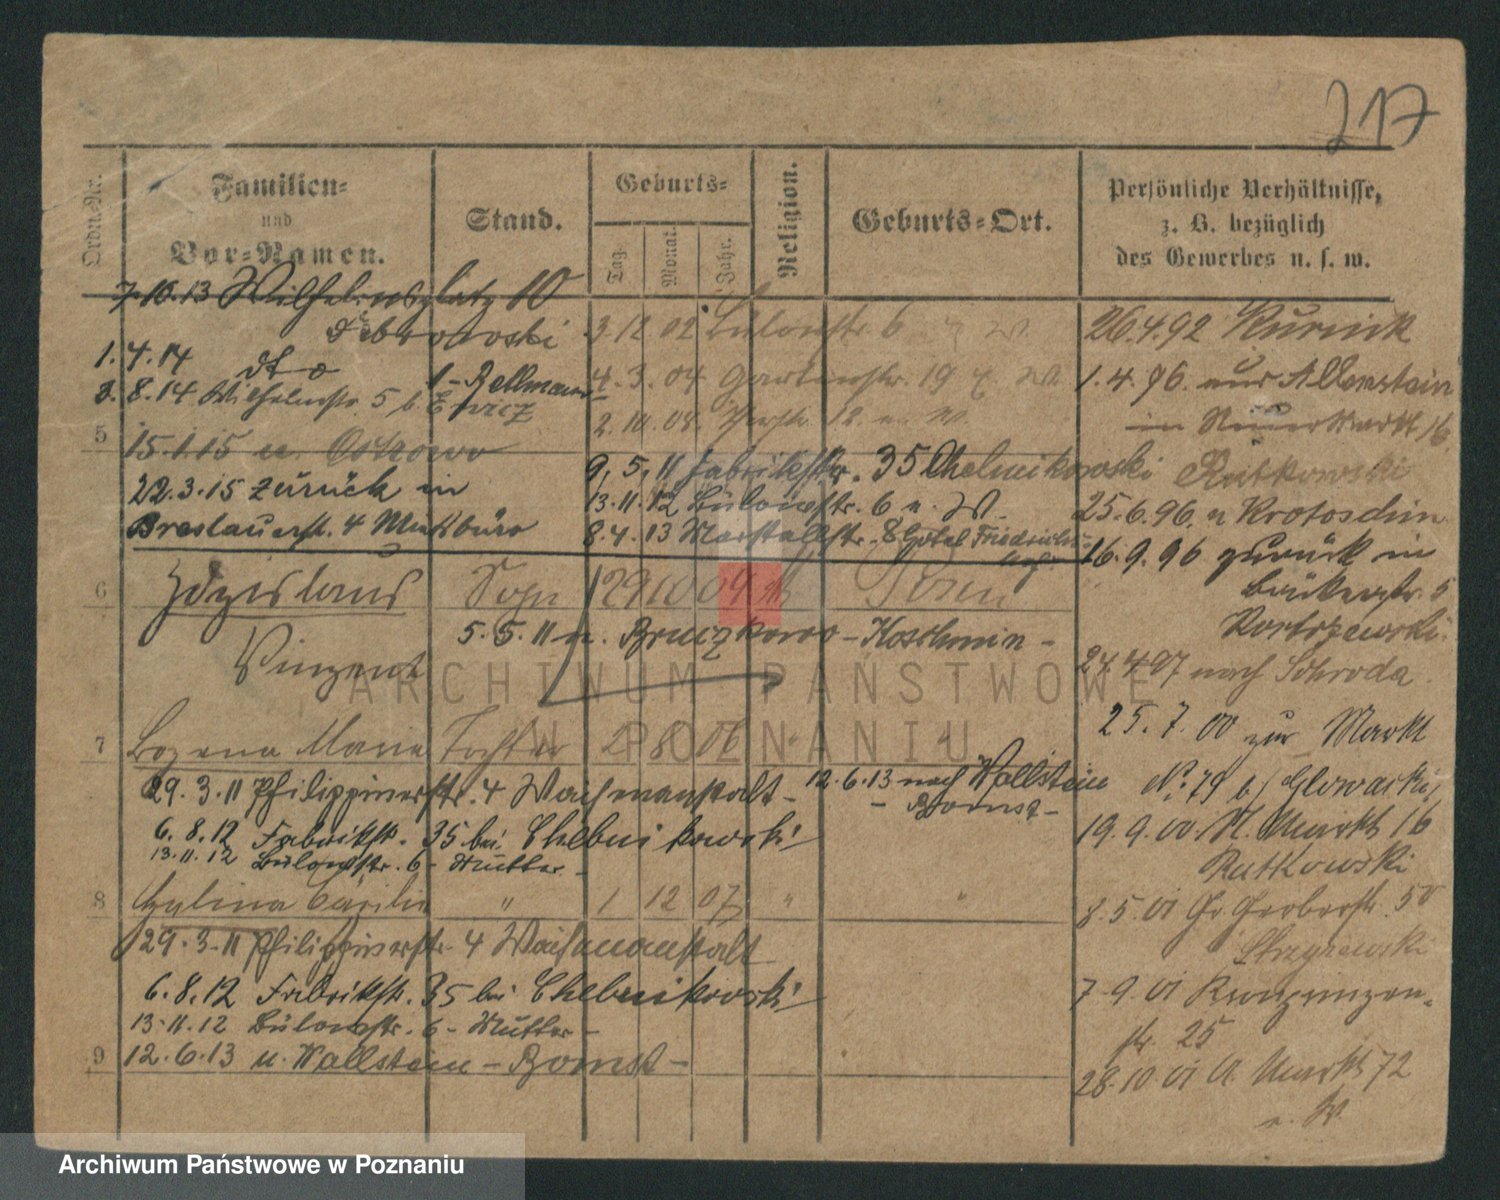 217
Ordn.-Nr.
Familien-
und
Vor-Namen.
Stand.
Geburts-
Tag.
Monat.
Jahr.
Religion.
Geburts-Ort.
Persönliche Verhältnisse,
z. B. bezüglich
des Gewerbes u. s. w.
7.10.13 Wilhelmsplatz 10
Dobrowolski
1.4.14 dto
8.14 Wilhelmstr. 5 b.
5
15.1.15 n. Ostrowo
22.3.15 zurück in
Breslauerstr. 4
3.12.02 Bülowstr. 6
4.3.04 Gartenstr. 19
2.10.08 12
9.5.11 Fabrikstr. 35 Chelmikowski
13.11.12 Bülowstr. 6 n. W.
8.4.13 Marstallstr. 8 Hotel
6
Zdzislaus
Vinzent
Sohn 29 10 09 Posen
5.5.11 n. Bruczkowo - Koschmin -
7
Bozena Maria Tochter 2 8 06 "
29.3.11 Philippinerstr. 4 Waisenanstalt -
12.6.13 nach Wollstein
- Bomst -
6.8.12 Fabrikstr. 35 bei Chelmikowski
13.11.12 Bülowstr. 6 - Mutter -
8
Cäcilie " 1 12 07 " "
29.3.11 Philippinerstr. 4 Waisenanstalt
6.8.12 Fabrikstr. 35 bei Chelmikowski
13.11.12 Bülowstr. 6 - Mutter -
9
12.6.13 n. Wollstein - Bomst -
26.4.92 Kurnik
1.4.96 aus Allenstein
in Neuer Markt 16
Rutkowski
25.6.96 n Krotoschin
16.9.96 zurück in
Bäckerstr. 5
24.4.97 nach Schroda
25.7.00 zur Markt
No. 79 b/ Glowacki
19.9.00 N. Markt 16
Rutkowski
8.5.01 Gr Gerberstr. 50
7.9.01
str. 25
28.10.01 A. Markt 72
n. W
ARCHIWUM PAŃSTWOWE
W POZNANIU
Archiwum Państwowe w Poznaniu